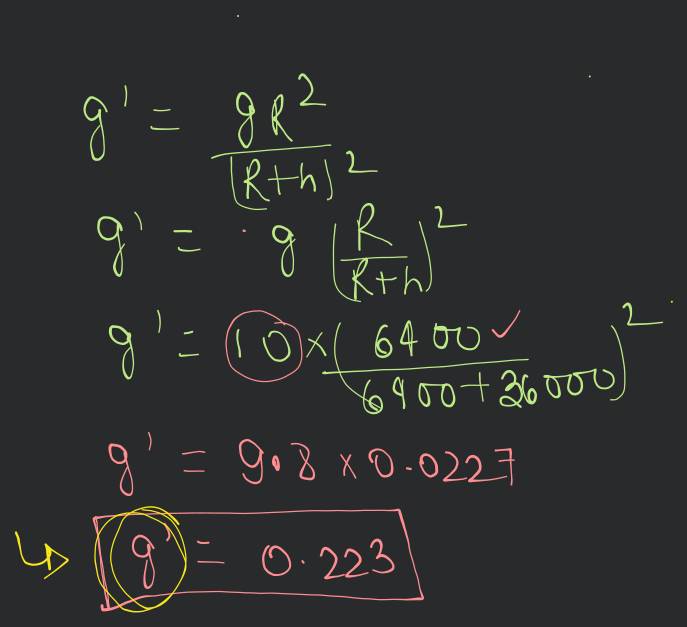 g' = gR²/(R+h)²
g' = g (R/R+h)²
g' = 10 × (6400/6400+36000)²
g' = 9.8 × 0.0227
g' = 0.223